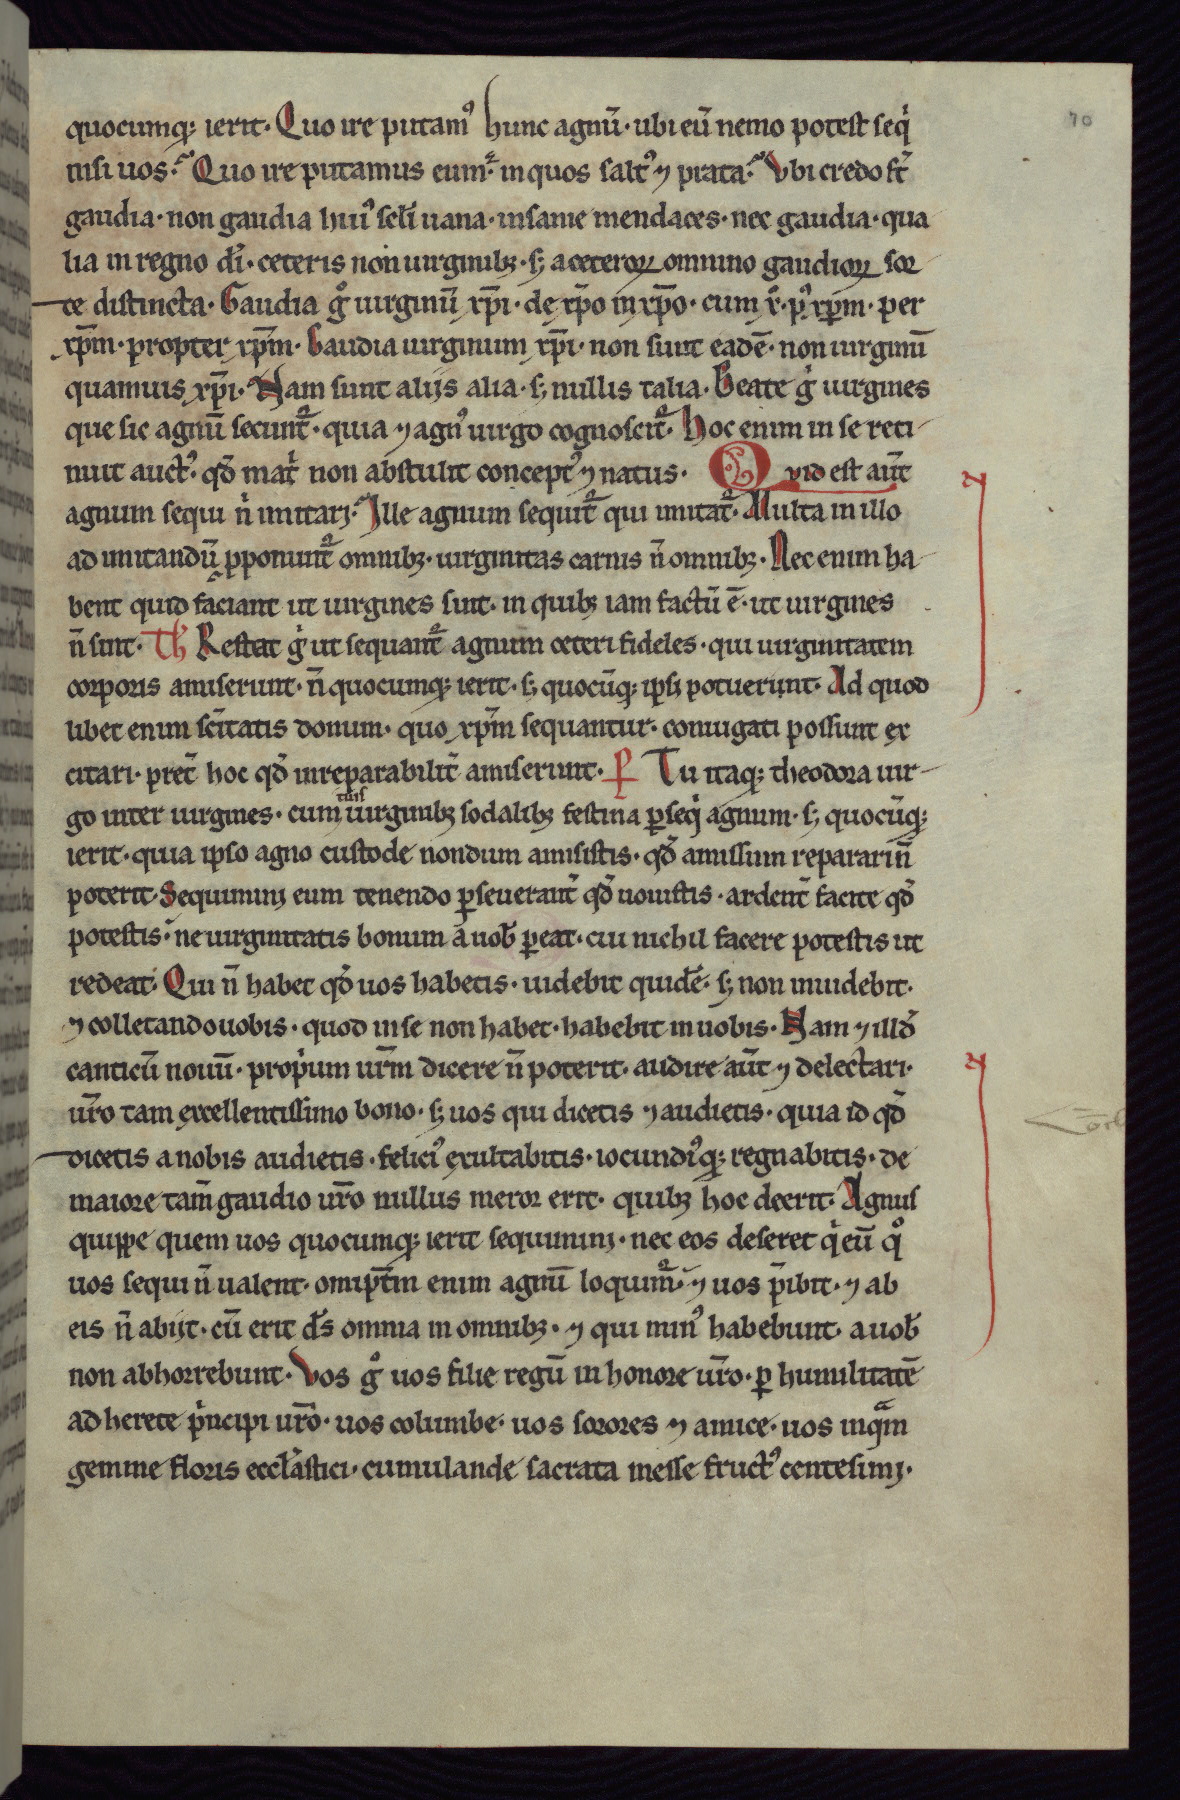 70
quocumq; ierit. Quo ire putam᷒ hunc agnū. ubi eū nemo potest seq̇
nisi uos? Quo ire putamus eum? in quos salt᷒ ⁊ prata? Vbi credo st̄
gaudia. non gaudia hui᷒ sclī uana. insanie mendaces. nec gaudia. qua
lia in regno dī. ceteris non uirginibꝫ. sꝫ a ceteroꝝ omnino gaudioꝝ sor
te distincta. Gaudia gͦ uirginū xp̄i. de xp̄o in xp̄o. cum x̄. p᷒ xp̄m. per
xp̄m. propter xp̄m. Gaudia uirginum xp̄i. non sunt eadē. non uirginū
quamuis xp̄i. Nam sunt alijs alia. sꝫ nullis talia. Beate gͥ uirgines
que sic agnū secunt̄. quia ⁊ agn᷒ uirgo cognoscit̄. Hoc enim in se reti
nuit auct᷒. qd̄ mat̄ non abstulit concept᷒ ⁊ natus. Qvid est aūt
agnum sequi n̄ imitarj? Ille agnum sequit̄ qui imitat̄. Multa in illo
ad imitandū ꝓponunt̄ omnibꝫ. uirginitas carnis n̄ omnibꝫ. Nec enim ha
bent quid faciant ut uirgines sint. in quibꝫ iam factū ē. ut uirgines
n̄ sint. Th Restat gͥ ut sequant̄ agnum ceteri fideles. qui uirginitatem
corporis amiserunt. n̄ quocumq; ierit. sꝫ quocūq; ipsi potuerunt. Ad quod
libet enim sc̄itatis donum. quo xp̄m sequantur. coniugati possunt ex
citari. pret̄ hoc qd̄ inreparabilit̄ amiserunt. P Tu itaq; theodora uir
go inter uirgines. cum tuis uirginibꝫ sodalibꝫ festina ꝑseq̇ agnum. sꝫ quocūq;
ierit. quia ipso agno custode nondum amisistis. qd̄ amissum reparari n̄
poterit. Sequiminj eum tenendo ꝑseuerant̄ qd̄ nouistis. ardent̄ facite qd̄
potestis. ne uirginitatis bonum a uob̄ ꝑeat. cui nichil facere potestis ut
redeat. Qui n̄ habet qd̄ uos habetis. uidebit quidē. sꝫ non inuidebit.
⁊ colletando uobis. quod in se non habet. habebit in uobis. Nam ⁊ illd̄
canticū nouū. propͥum ur̄m dicere n̄ poterit. audire aūt ⁊ delectari.
ur̄o tam excellentissimo bono. sꝫ uos qui dicetis ⁊ audietis. quia id qd̄
dicetis a nobis audietis. felici᷒ exultabitis. iocundi᷒q; regnabitis. de
maiore tam̄ gaudio ur̄o nullus meror erit. quibꝫ hoc deerit. Agnus
quippe quem uos quocumq; ierit sequiminj. nec eos deseret qͥ eū qͦ
uos sequi n̄ ualent. omipt̄m enim agnū loquim̄. ⁊ uos p̄ibit. ⁊ ab
eis n̄ abijt. cū erit ds̄ omnia in omnibꝫ. ⁊ qui min᷒ habebunt. a uob̄
non abhorrebunt. Vos gͦ uos filie regū in honore ur̄o. ꝑ humilitatē
adherete pͥncipi ur̄o. uos columbe. uos sorores ⁊ amice. uos inqᵃm
gemme floris eccl̄astici. cumulande sacrata messe fruct᷒ centesimj.